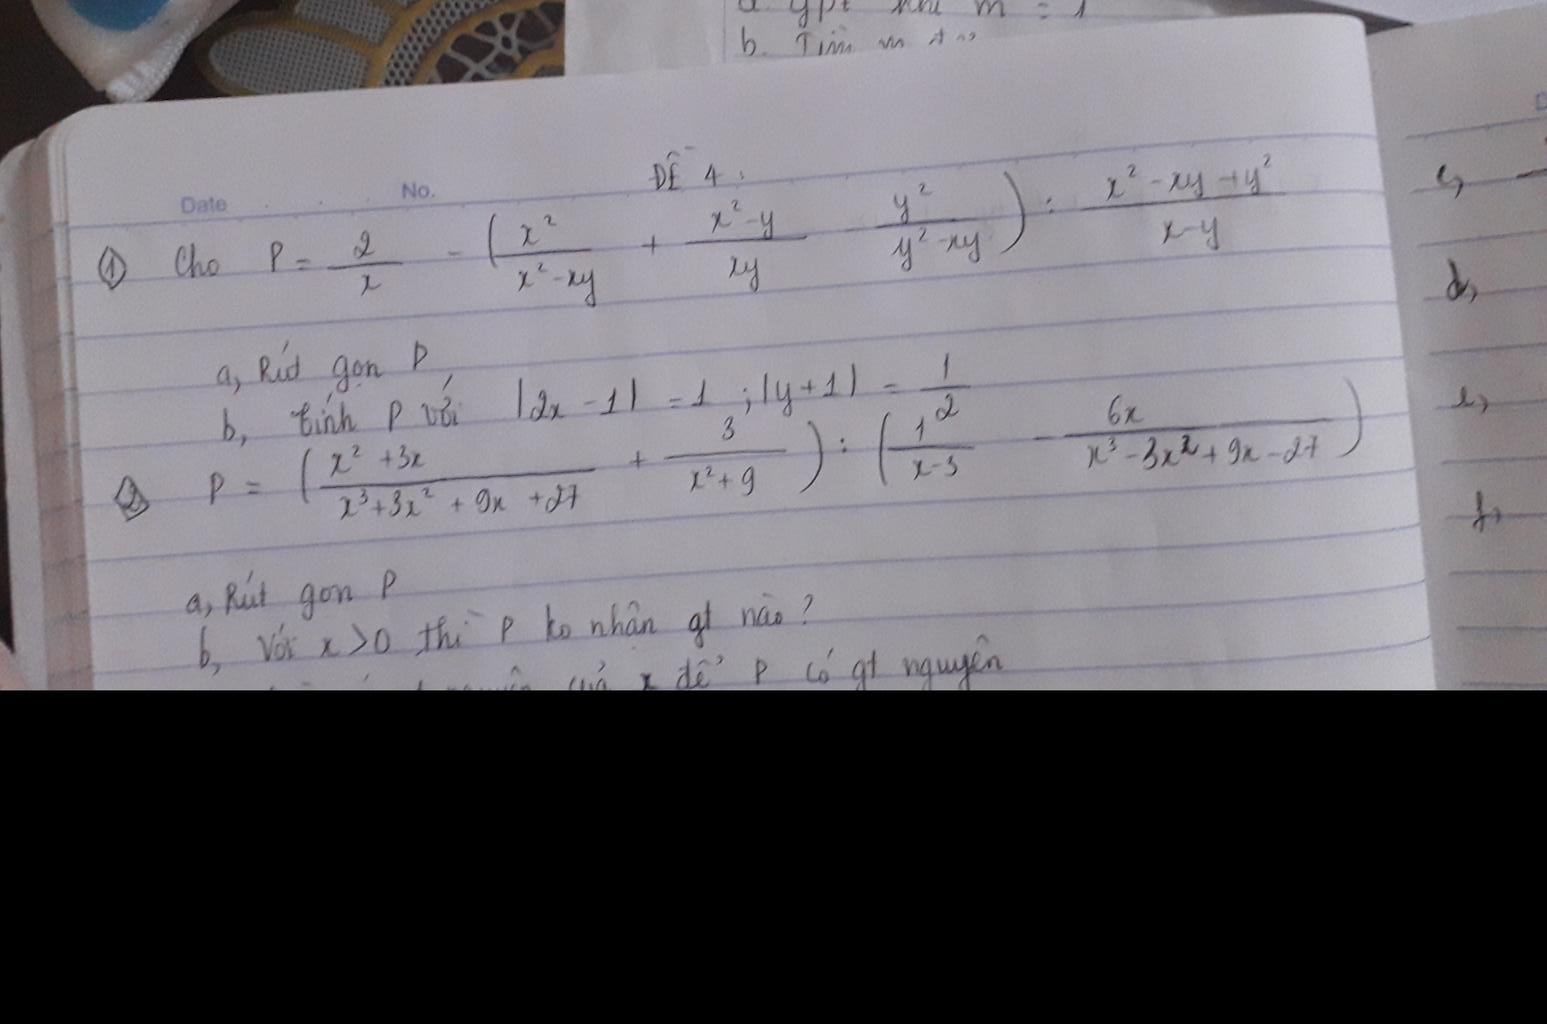 a. gpt khi m = 1
b. Tìm m
Date No. ĐỀ 4:
① Cho P = 2/x - (x²/(x²-xy) + (x²-y)/xy - y²/(y²-xy)) : (x²-xy+y²)/(x-y)
a, Rút gọn P
b, tính P với |2x-1| = 1 ; |y+1| = 1/2
② P = ((x²+3x)/(x³+3x²+9x+27) + 3/(x²+9)) : (1/(x-3) - 6x/(x³-3x²+9x-27))
a, Rút gọn P
b, Với x>0 thì P ko nhận gt nào?
của x để P có gt nguyên
c,
d,
e,
f,